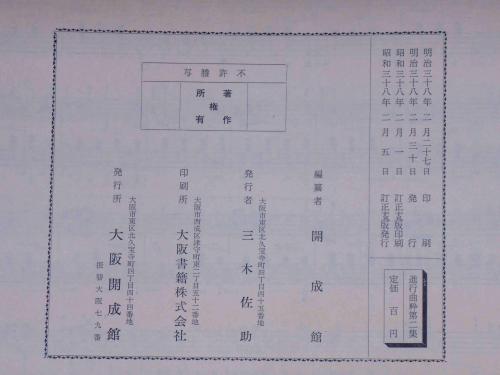 明治三十八年 二月二十七日 印刷
明治三十八年 二月三十日 発行
昭和三十八年 二月一日 訂正五版印刷
昭和三十八年 二月五日 訂正五版発行
進行曲粋第二集
定価 百円
不許謄写
著作
権
所有
編纂者 開成館
大阪市東区北久宝寺町四丁目四十五番地
発行者 三木佐助
大阪市西成区津守町東二丁目五十二番地
印刷所 大阪書籍株式会社
大阪市東区北久宝寺町四丁目四十四番地
発行所 大阪開成館
振替大阪七九番